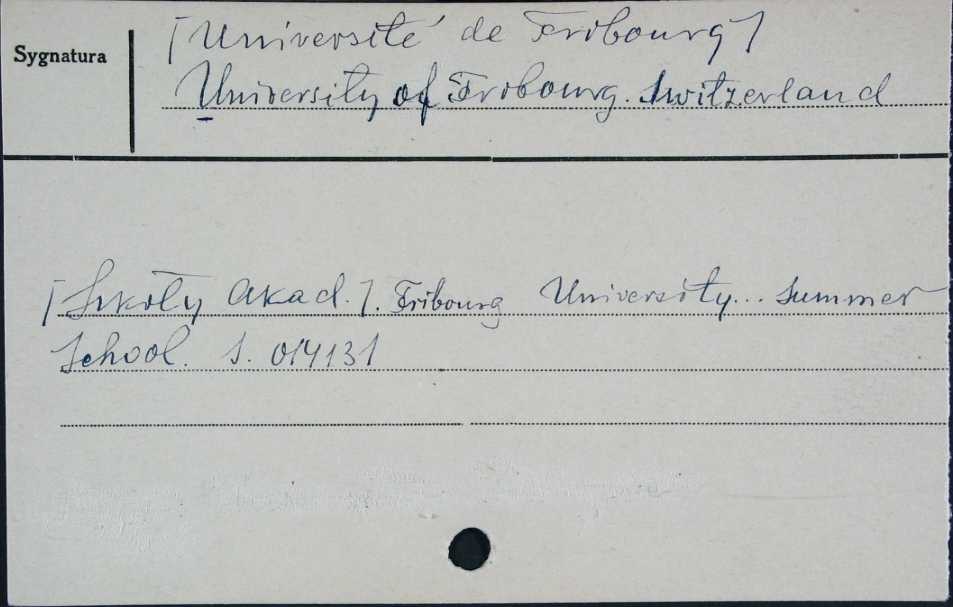 [Université de Fribourg]
Sygnatura
University of Fribourg. Switzerland
[Szkoły Akad.]. Fribourg University... Summer
School. S. 014131